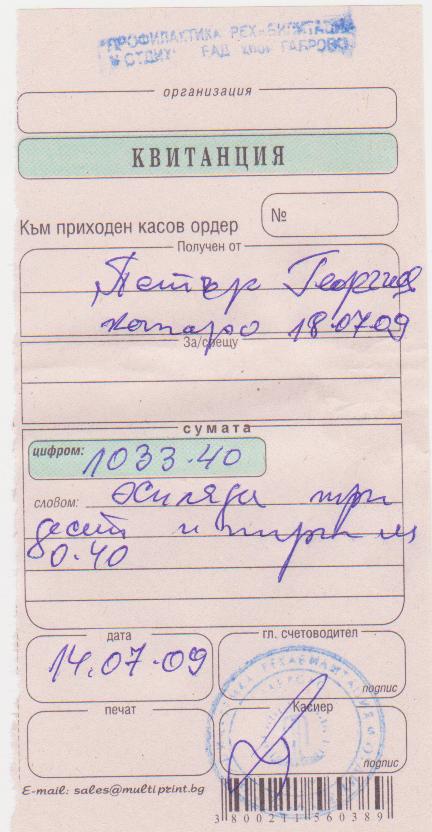 "ПРОФИЛАКТИКА РЕХАБИЛИТАЦИЯ
И ОТДИХ" ЕАД ГАБРОВО
организация
КВИТАНЦИЯ
Към приходен касов ордер №
Получен от
Петър Георгиев
18.07.09
За/срещу
сумата
цифром: 1033.40
словом: хиляда три
десет и три
0.40
дата
14.07.09
гл. счетоводител
подпис
печат
Касиер
подпис
E-mail: sales@multiprint.bg
3800211560389